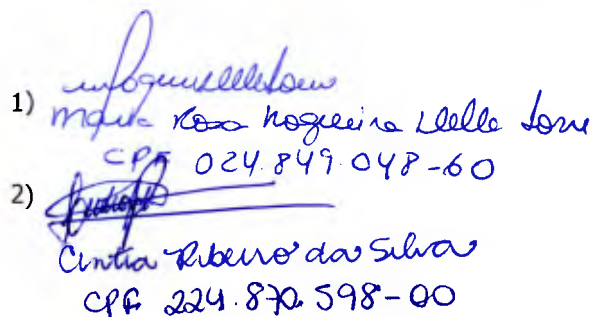 1)
Maria Rosa Nogueira Delle Torre
CPF 024.849.048-60
2)
Cintia Ribeiro da Silva
CPF 224.870.598-00